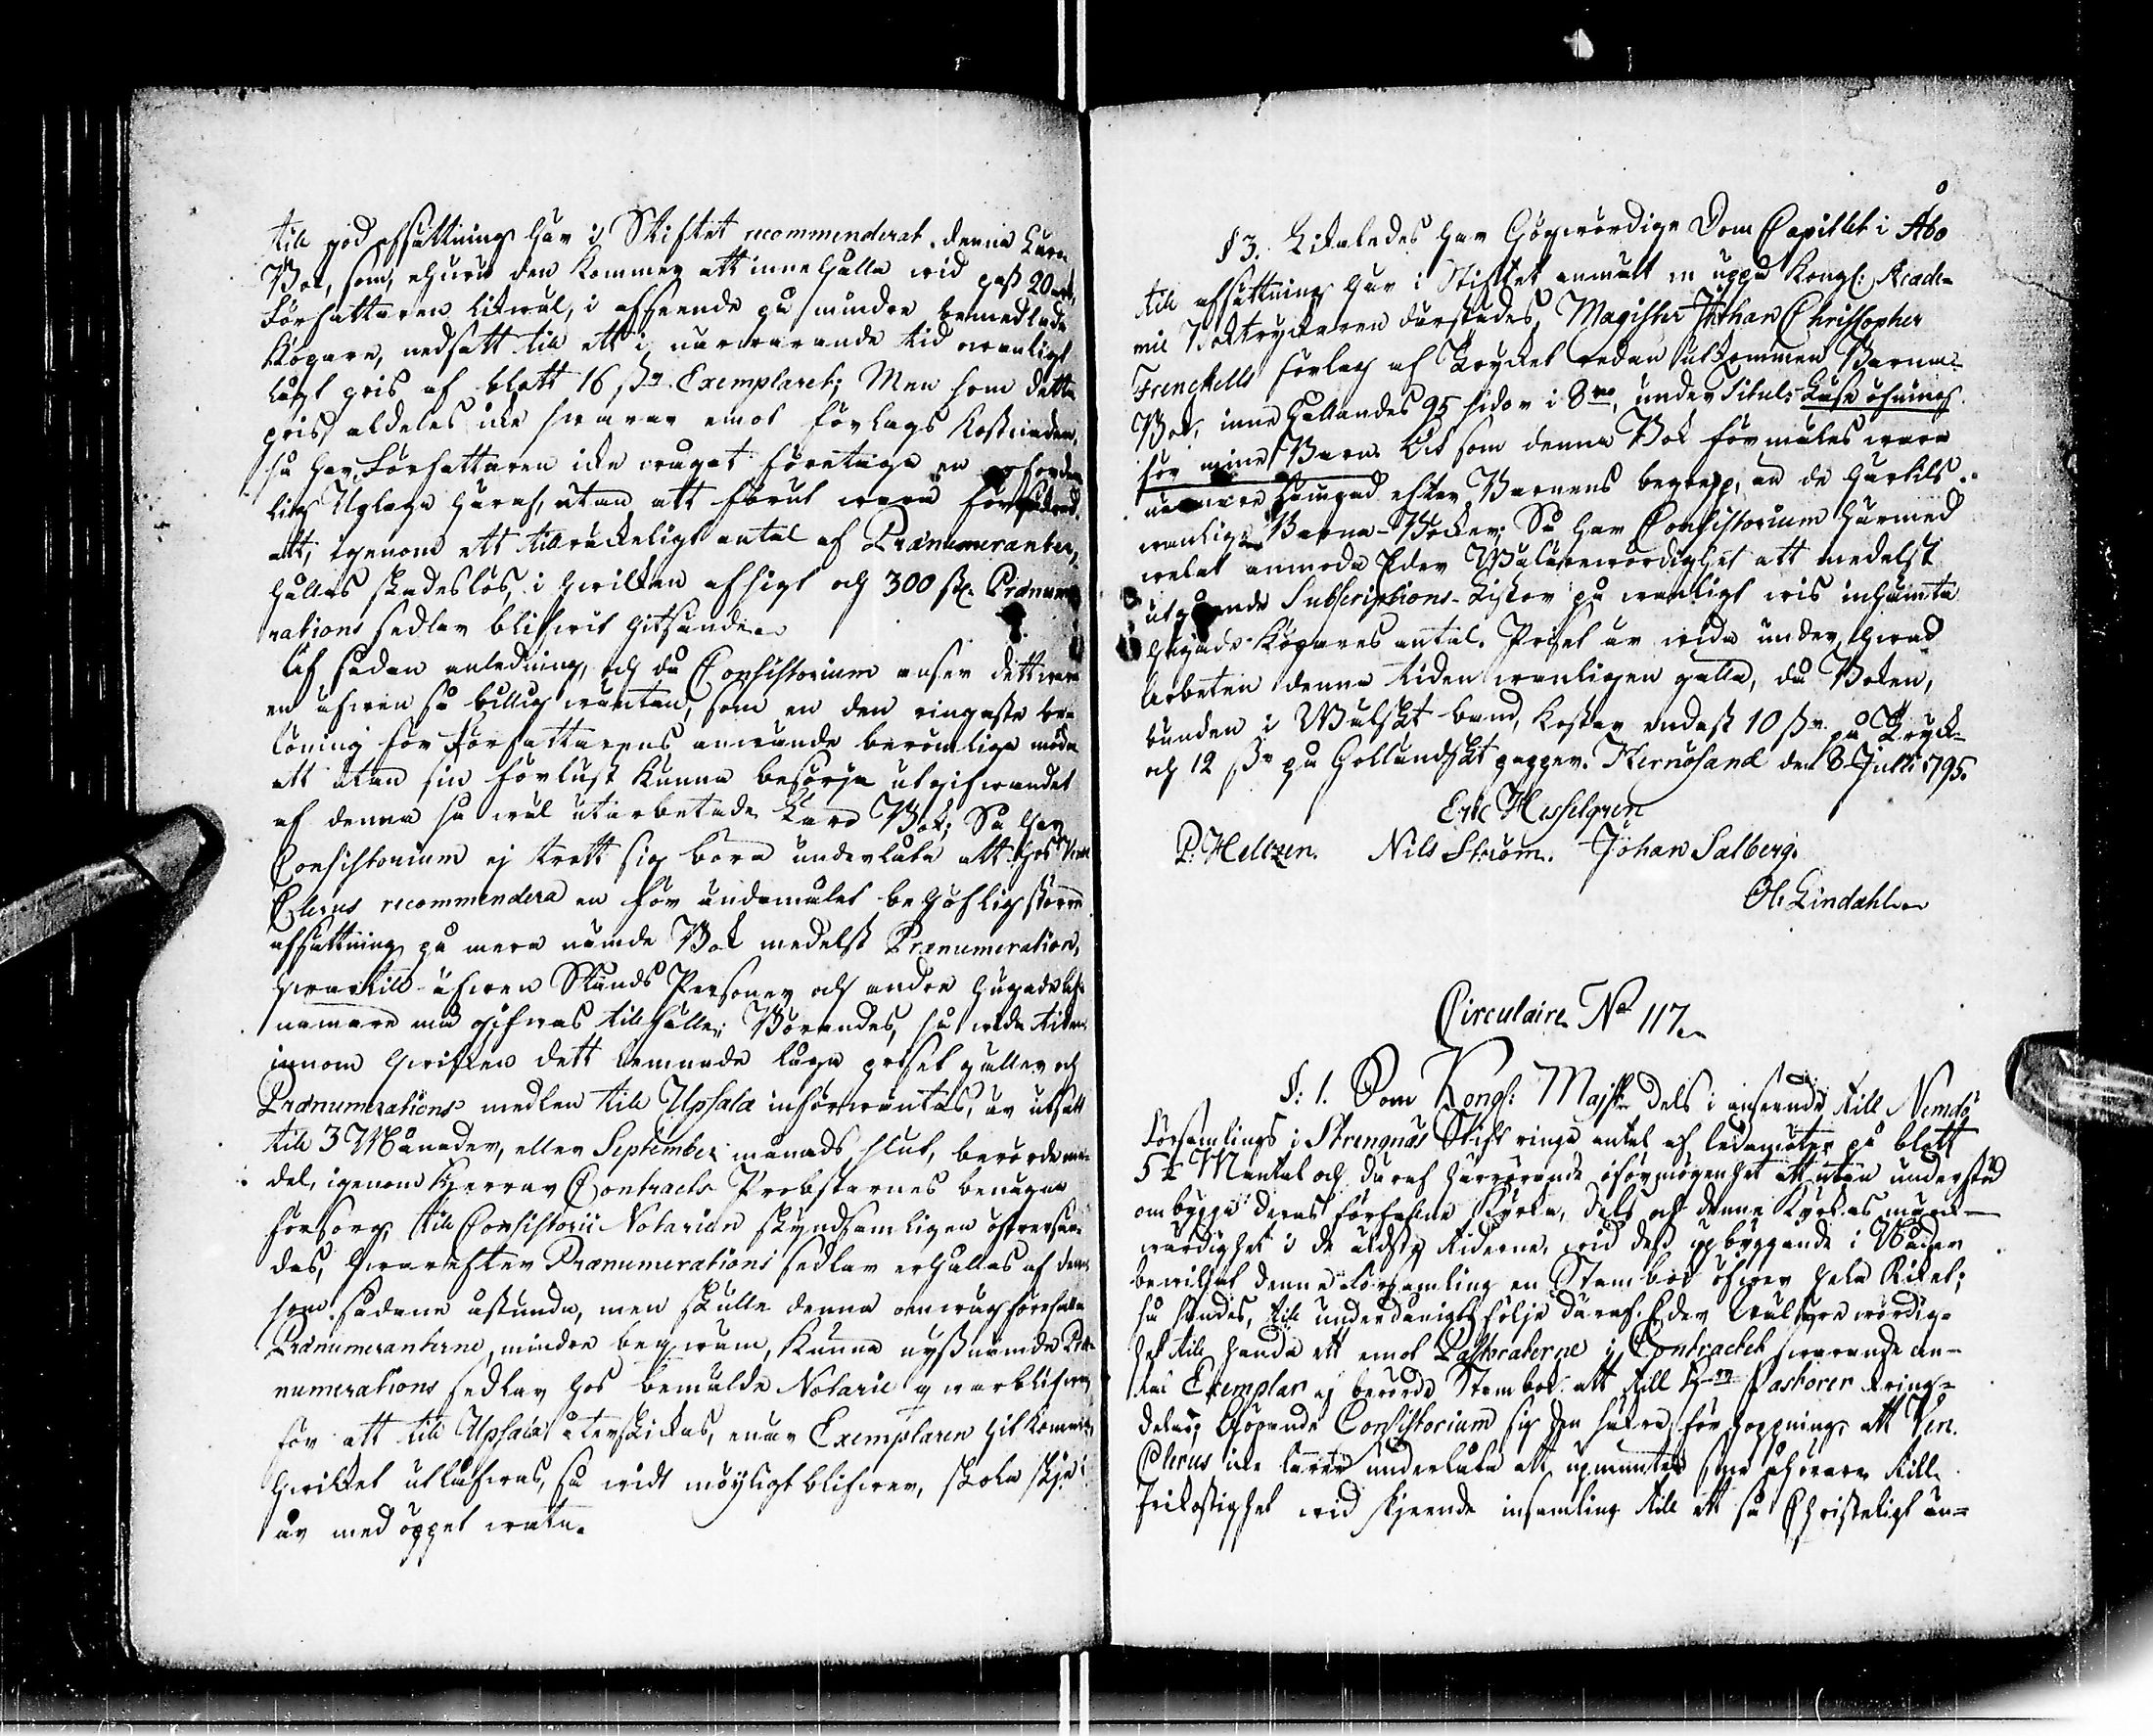 till god afsättning här i Stiftet recommenderat denna Läro
Bok, som, ehuru den kommer att innehålla wid pass 20 ark,
Författaren likwäl, i afseende på mindre bemedlade
Köpare, nedsatt till ett i närwarande tid owanligt
lågt pris af blott 16 ß Exemplaret; Men som detta
pris aldeles icke swarar emot förlags kostnaden,
så har Författaren icke wågat företaga en
lig Uplaga häraf, utan att förut wara försäkrad
att, igenom ett tillräckeligt antal af Prænumeranter,
hållas skadeslös, i hwilken afsigt och 300 st. Prænume-
rations sedlar blifwit hitsände.
Af sådan anledning, och då Consistorium anser dett wara
en äfwen så billig wäntan, som en den ringaste be-
löning för Författarens anwände berömliga möda
att utan sin förlust kunna besörja utgifwandet
af denna så wäl utarbetade Läro Bok; Så har
Consistorium ej trott sig böra underlåta att hos Vener.
Clerus recommendera en för ändamålet behöflig större
afsättning på mera nämde Bok medelst Prænumeration,
hwartill äfwen Stånds Personer och andre hugade
namare må gifwas tillfälle; Börandes, så wida tiden
innom hwilken dett lemnade låga priset gäller och
Prænumerations medlen till Upsala införwäntas, är utsatt
till 3 Månader, eller September månads slut, berörde me-
del, igenom Herrar Contracts Probstarnes benägna
försorg, till Consistorii Notarien skyndsamligen öfwersän-
das, hwarefter Prænumerations sedlar erhållas af dem
som sådane åstunda, men skulle denna omwäg förefalla
Prænumeranterne mindre beqwäm, kunna nyssnämde Præ-
numerations sedlar hos bemälde Notarie qwarblifwa
för att till Upsala återskickas, enär Exemplaren hitkomma,
hwilket utlåfwas, så widt möjligt blifwer, skola skje i
år med öppet watn.
§ 3. Likaledes har Högwördige Dom Capitlet i Åbo
till afsättning här i Stiftet anmält en uppå Kongl: Acade-
mie Boktryckaren därstädes, Magister Johan Christopher
Frenckells förlag af Trycket redan utkommen Barna-
Bok, innehållandes 95 sidor i 8vo, under Titul: Läse öfning
för mine Barn. Och som denna Bok förmäles wara
närmare lämpad efter Barnens begrepp, än de härtils
wanliga Barna-Böcker; Så har Consistorium härmed
welat anmoda Eder Wälärewördighet att medelst
utgående Subscriptions-Listor på wanligt wis inhämta
hugade Köpares antal. Priset är wida under, hwad
Arbeten denna tiden wanligen gälla, då Boken,
bunden i Wälskt band, kostar endast 10 ß på Tryck-
och 12 ß på Holländskt papper. Hernösand den 8 Julii 1795.
Eric Hesselgren
P. Hellzen. Nils Ström. Johan Salberg.
Ol: Lindahl
Circulaire No 117.
§: 1. Som Kongl: Majst dels i anseende till Nemdö
Församlings i Strengnäs Stift ringa antal af ledamöter på blott
5¼ Mantal och däraf härrörande oförmögenhet att utan understöd
ombygga deras förfalne Kyrka, dels af denne Kyrkas märk-
wärdighet i de äldste tiderne, wid dess upbyggande i
bewiljat denne Församling en Stambok öfwer hela Riket;
så sändes, till underdånigt följe däraf, Eder Wäl ärewördig-
het till handa ett emot Pastoraterne i Contractet swarande an-
tal Exemplar af berörde Stambok att till Hrr Pastorer kring-
delas; Hoppandes Consistorium sig den säkra förhoppning att Ven.
Clerus icke lärer underlåta att upmuntra sine åhörare till
frikostighet wid skjeende insamling till ett så Christeligt än-